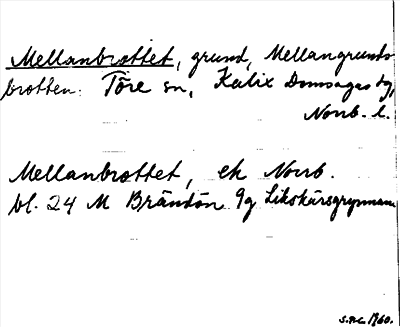 Mellanbrottet, grund, Mellangrunds
brotten. Töre sn, Kalix Domsagas tg,
Norrb. l.
Mellanbrottet, ek Norrb.
bl. 24 M Brändön 9g Likskärsgrynnan
S.P.C. 1960.